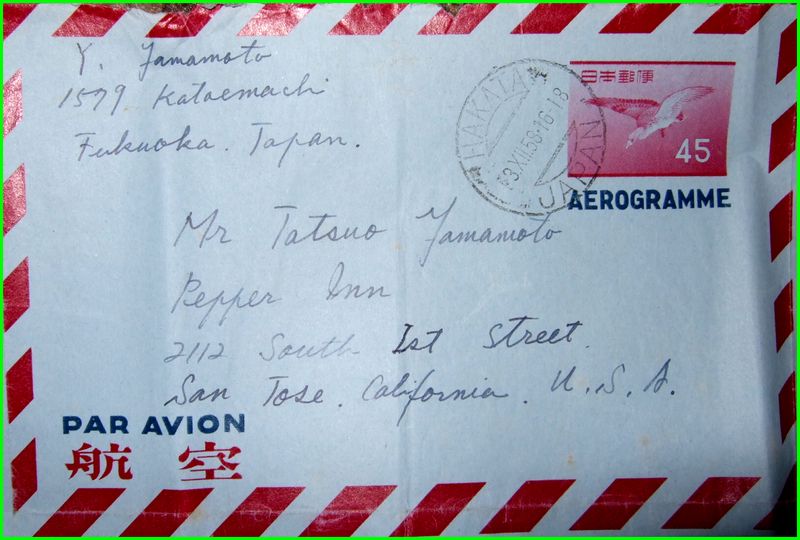 Y. Yamamoto
1579 Kataemachi
Fukuoka. Japan.
HAKATA
13.XII.58.16-18
JAPAN
日本郵便
45
AEROGRAMME
Mr Tatsuo Yamamoto
Pepper Inn
2112 South 1st Street.
San Jose. California. U.S.A.
PAR AVION
航空